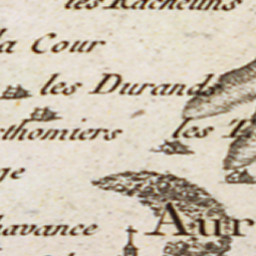 les Racheuns
la Cour
les Durands
rthomiers les T
ge
havance Aur